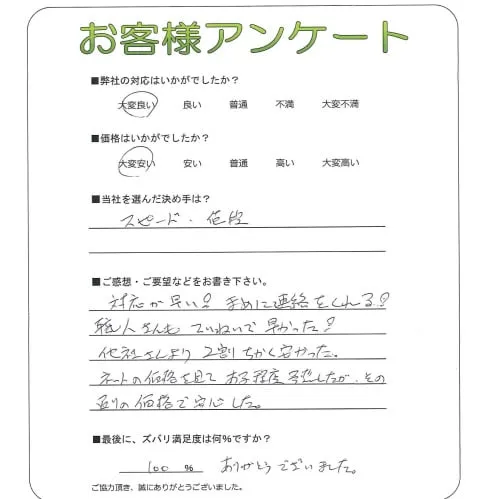 お客様アンケート
■弊社の対応はいかがでしたか？
大変良い 良い 普通 不満 大変不満
■価格はいかがでしたか？
大変安い 安い 普通 高い 大変高い
■当社を選んだ決め手は？
スピード・値段
■ご感想・ご要望などをお書き下さい。
対応が早い！ 手めに連絡をくれる！
職人さんも ていねいで 早かった！
他社さんより 2割ちかく安かった。
ネートの価格を見て ある程度予想したが、その
通りの価格で安心した。
■最後に、ズバリ満足度は何％ですか？
100 ％ ありがとうございました。
ご協力頂き、誠にありがとうございました。